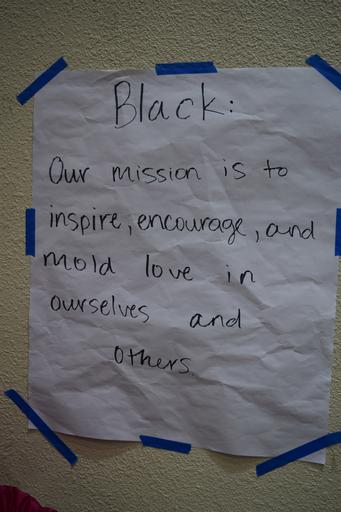 Black:
Our mission is to
inspire, encourage, and
mold love in
ourselves and
others.